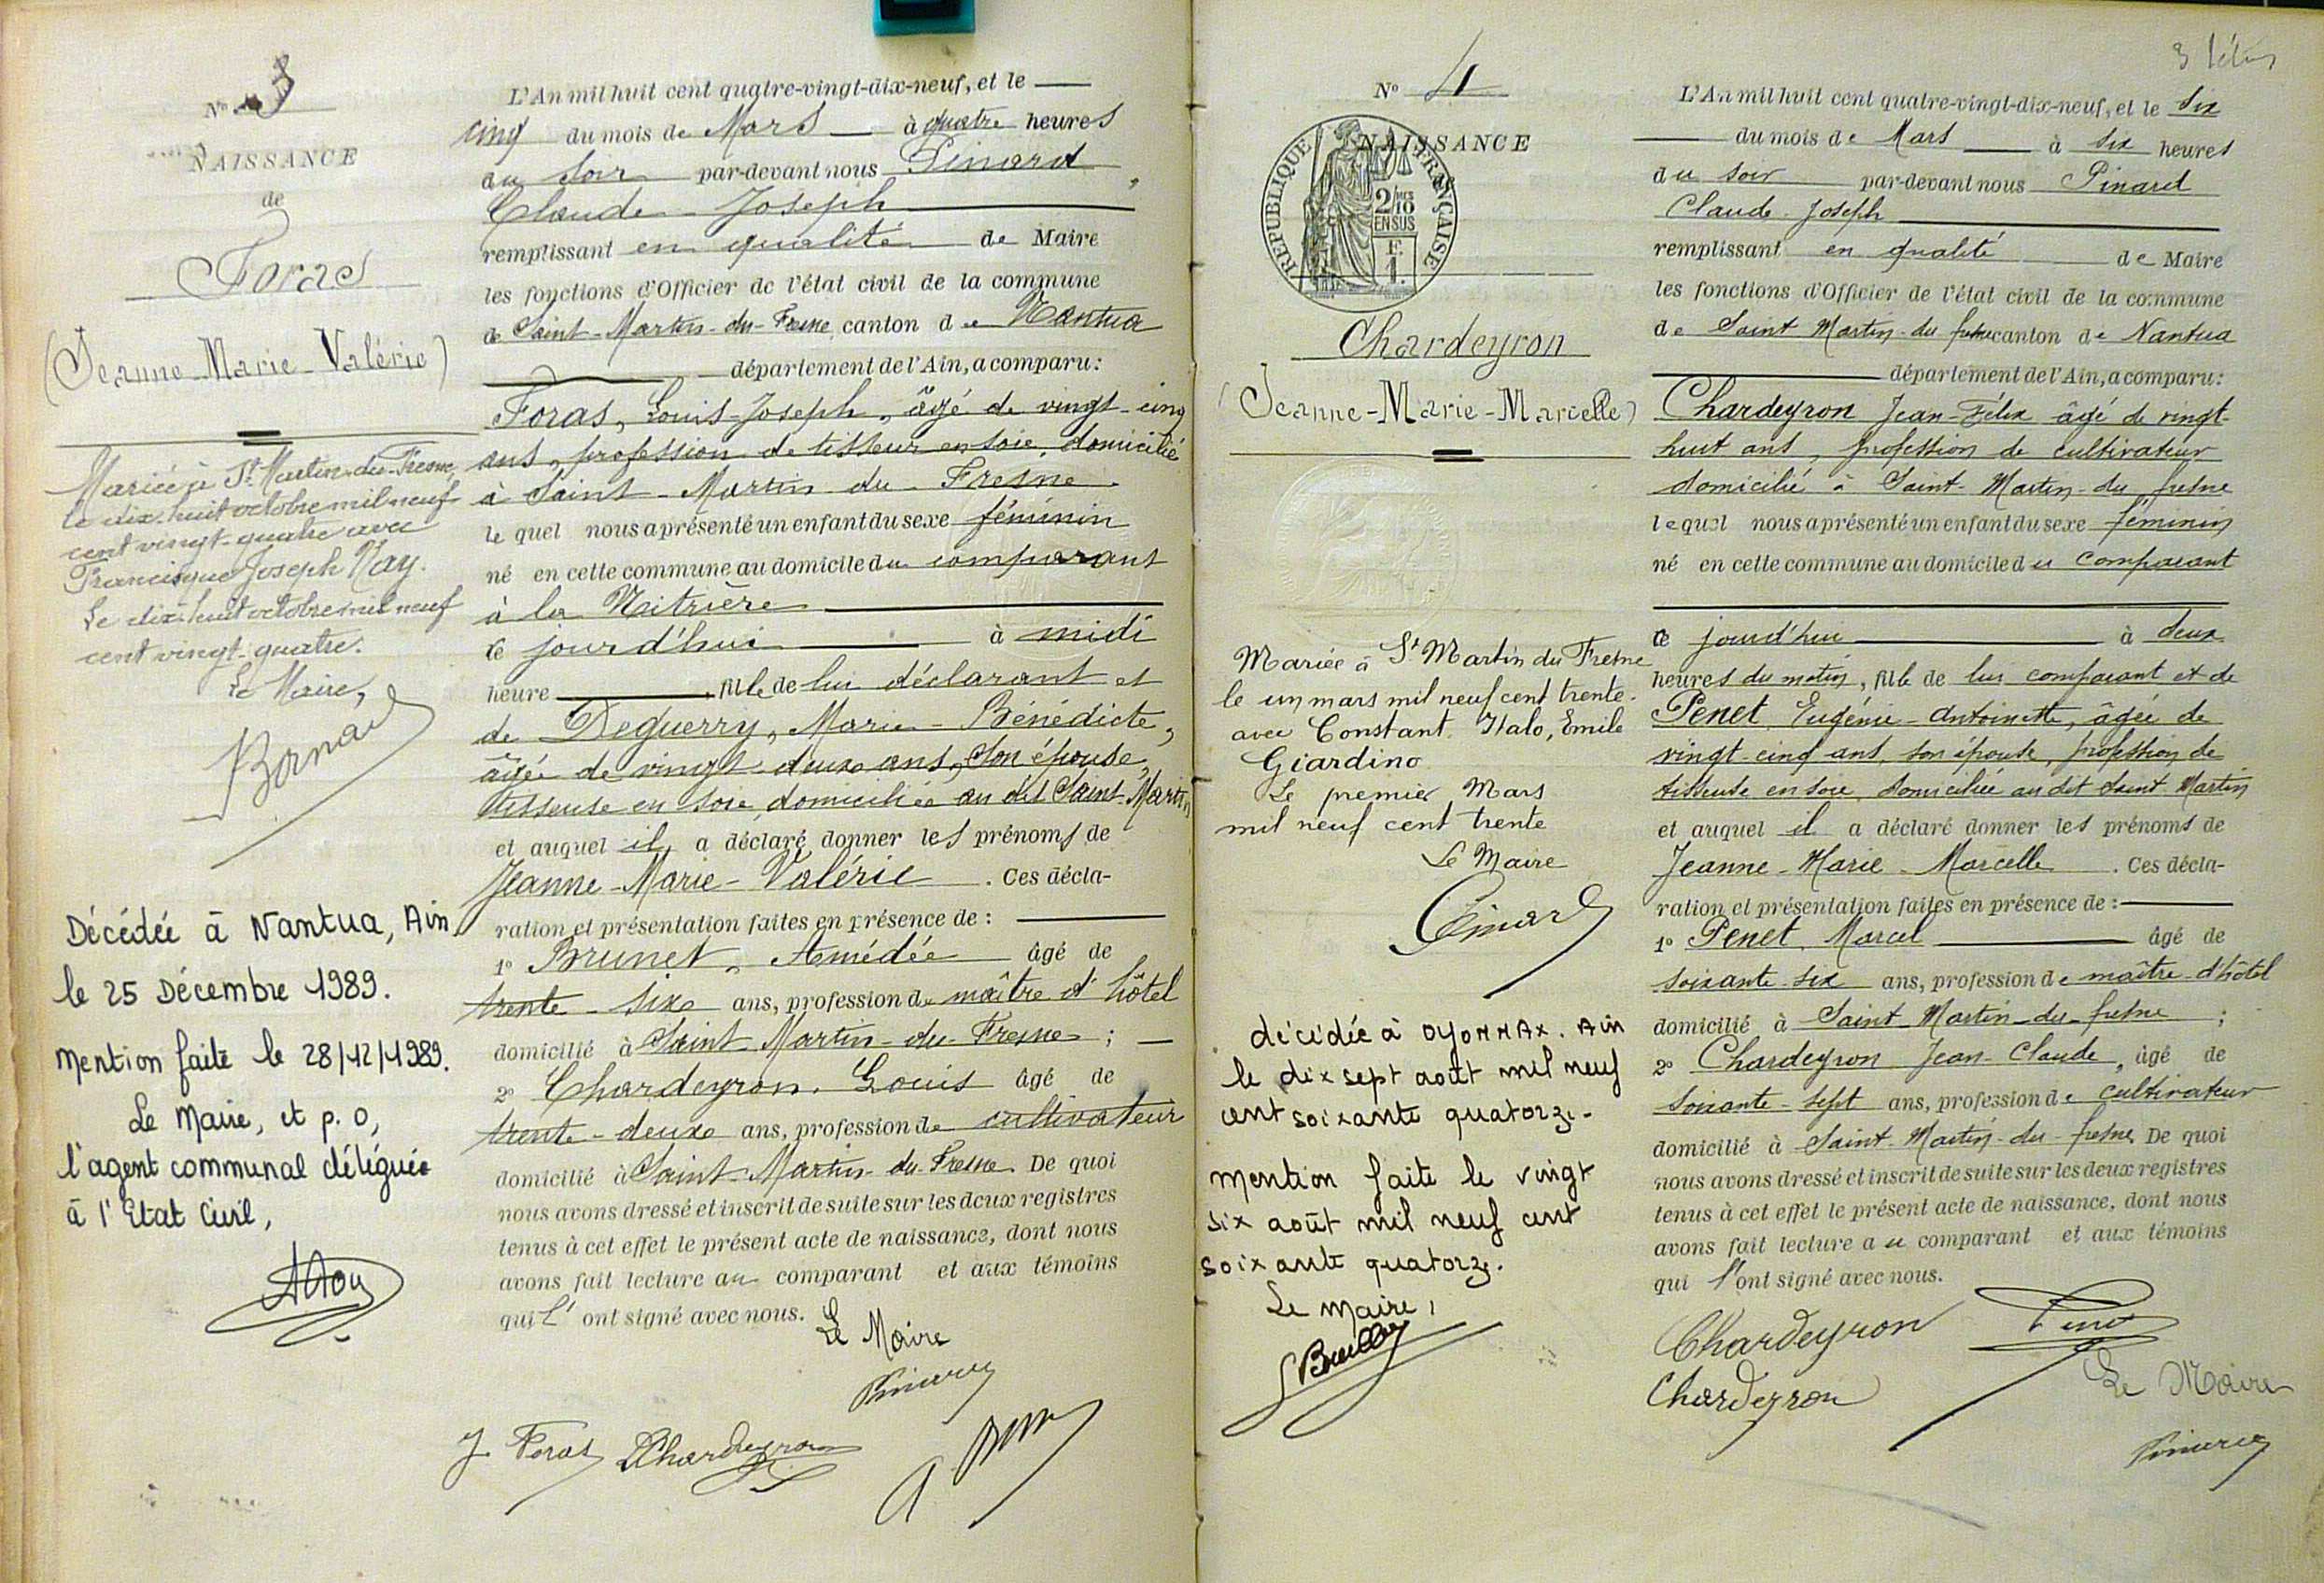 N° 3
NAISSANCE
de
Foras
(Jeanne-Marie-Valérie)
Mariée à St Martin-du-Fresne,
le dix-huit octobre mil neuf
cent vingt-quatre avec
Francisque Joseph Nay.
Le dix-huit octobre mil neuf
cent vingt-quatre.
Le Maire,
Décédée à Nantua, Ain,
le 25 Décembre 1989.
Mention faite le 28/12/1989.
Le Maire, et p. o,
l'agent communal déléguée
à l'Etat Civil,
L'An mil huit cent quatre-vingt-dix-neuf, et le
cinq du mois de Mars à quatre heures
du soir par-devant nous Pinard
Claude-Joseph,
remplissant en qualité de Maire
les fonctions d'Officier de l'état civil de la commune
de Saint-Martin-du-Fresne, canton de Nantua
département de l'Ain, a comparu:
Foras, Louis-Joseph, âgé de vingt-cinq
ans, profession de tisseur en soie, domicilié
à Saint-Martin du Fresne.
le quel nous a présenté un enfant du sexe féminin
né en cette commune au domicile du comparant
à la
ce jourd'hui à midi
heure fille de lui déclarant et
de Deguerry, Marie-Bénédicte,
âgée de vingt-deux ans, son épouse,
tisseuse en soie, domiciliée au dit Saint-Martin
et auquel il a déclaré donner les prénoms de
Jeanne-Marie-Valérie. Ces décla-
ration et présentation faites en présence de :
1° Brunet, Amédée âgé de
trente-six ans, profession de maître d'hôtel
domicilié à Saint Martin-du-Fresne ;
2° Chardeyron, Louis âgé de
trente-deux ans, profession de cultivateur
domicilié à Saint-Martin-du-Fresne. De quoi
nous avons dressé et inscrit de suite sur les deux registres
tenus à cet effet le présent acte de naissance, dont nous
avons fait lecture au comparant et aux témoins
qui l' ont signé avec nous.
Le Maire
J. Foras LChardeyron
N° 4
NAISSANCE
REPUBLIQUE FRANÇAISE
2/10
EN SUS
F.
1.
Chardeyron
(Jeanne-Marie-Marcelle)
Mariée à St Martin du Fresne
le un mars mil neuf cent trente.
avec Constant, Italo, Emile
Giardino
Le premier Mars
mil neuf cent trente
Le Maire
décédée à OYONNAX. Ain
le dix sept août mil neuf
cent soixante quatorze.
Mention faite le vingt
six août mil neuf cent
soixante quatorze.
Le maire,
L'An mil huit cent quatre-vingt-dix-neuf, et le Six
du mois de Mars à six heures
du soir par-devant nous Pinard
Claude-Joseph
remplissant en qualité de Maire
les fonctions d'Officier de l'état civil de la commune
de Saint Martin-du fresne canton de Nantua
département de l'Ain, a comparu:
Chardeyron Jean-Félix âgé de vingt-
huit ans, profession de cultivateur
domicilié à Saint-Martin-du fresne
lequel nous a présenté un enfant du sexe féminin
né en cette commune au domicile du comparant
ce jourd'hui à deux
heures du matin, fille de lui comparant et de
Penet Eugénie-Antoinette, âgée de
vingt-cinq ans, son épouse, profession de
tisseuse en soie, domiciliée au dit Saint Martin
et auquel il a déclaré donner les prénoms de
Jeanne-Marie-Marcelle. Ces décla-
ration et présentation faites en présence de :
1° Penet, Marcel âgé de
soixante-six ans, profession de maître-d'hôtel
domicilié à Saint Martin-du-fresne ;
2° Chardeyron Jean-Claude, âgé de
soixante-sept ans, profession de cultivateur
domicilié à Saint-Martin-du-fresne. De quoi
nous avons dressé et inscrit de suite sur les deux registres
tenus à cet effet le présent acte de naissance, dont nous
avons fait lecture au comparant et aux témoins
qui l'ont signé avec nous.
Chardeyron
Chardeyron
Le Maire